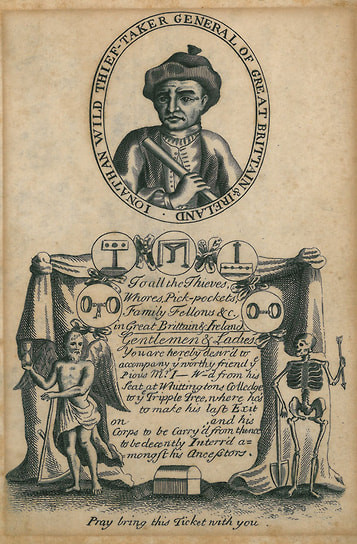 IONATHAN WILD THIEF-TAKER GENERAL OF GREAT BRITTAIN & IRELAND.
To all the Thieves,
Whores, Pick-pockets,
Family Fellons &c.
in Great Brittain & Ireland.
Gentlemen & Ladies
You are hereby desir'd to
accompany yͤ worthy friend yͤ
Pious Mͬ. I— W—d from his
Seat at Whittingtons Colledge
to yͤ Tripple Tree, where he's
to make his last Exit
on , and his
Corps to be Carry'd from thence
to be decently Interr'd a=
mongst his Ancestors.
Pray bring this Ticket with you